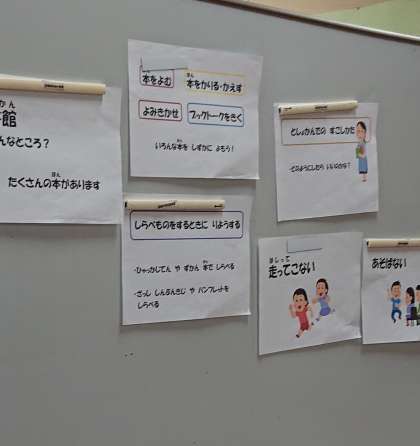 館
んなところ？
たくさんの本があります
本をよむ
本をかりる・かえす
よみきかせ
ブックトークをきく
いろんな本を しずかに よもう！
しらべものをするときに りようする
・ひゃっかじてん や ずかん 本で しらべる
・ざっし しんぶんきじ や パンフレットを
しらべる
としょかんでの すごしかた
どのようにしたら いいのかな？
走ってこない
あそばない